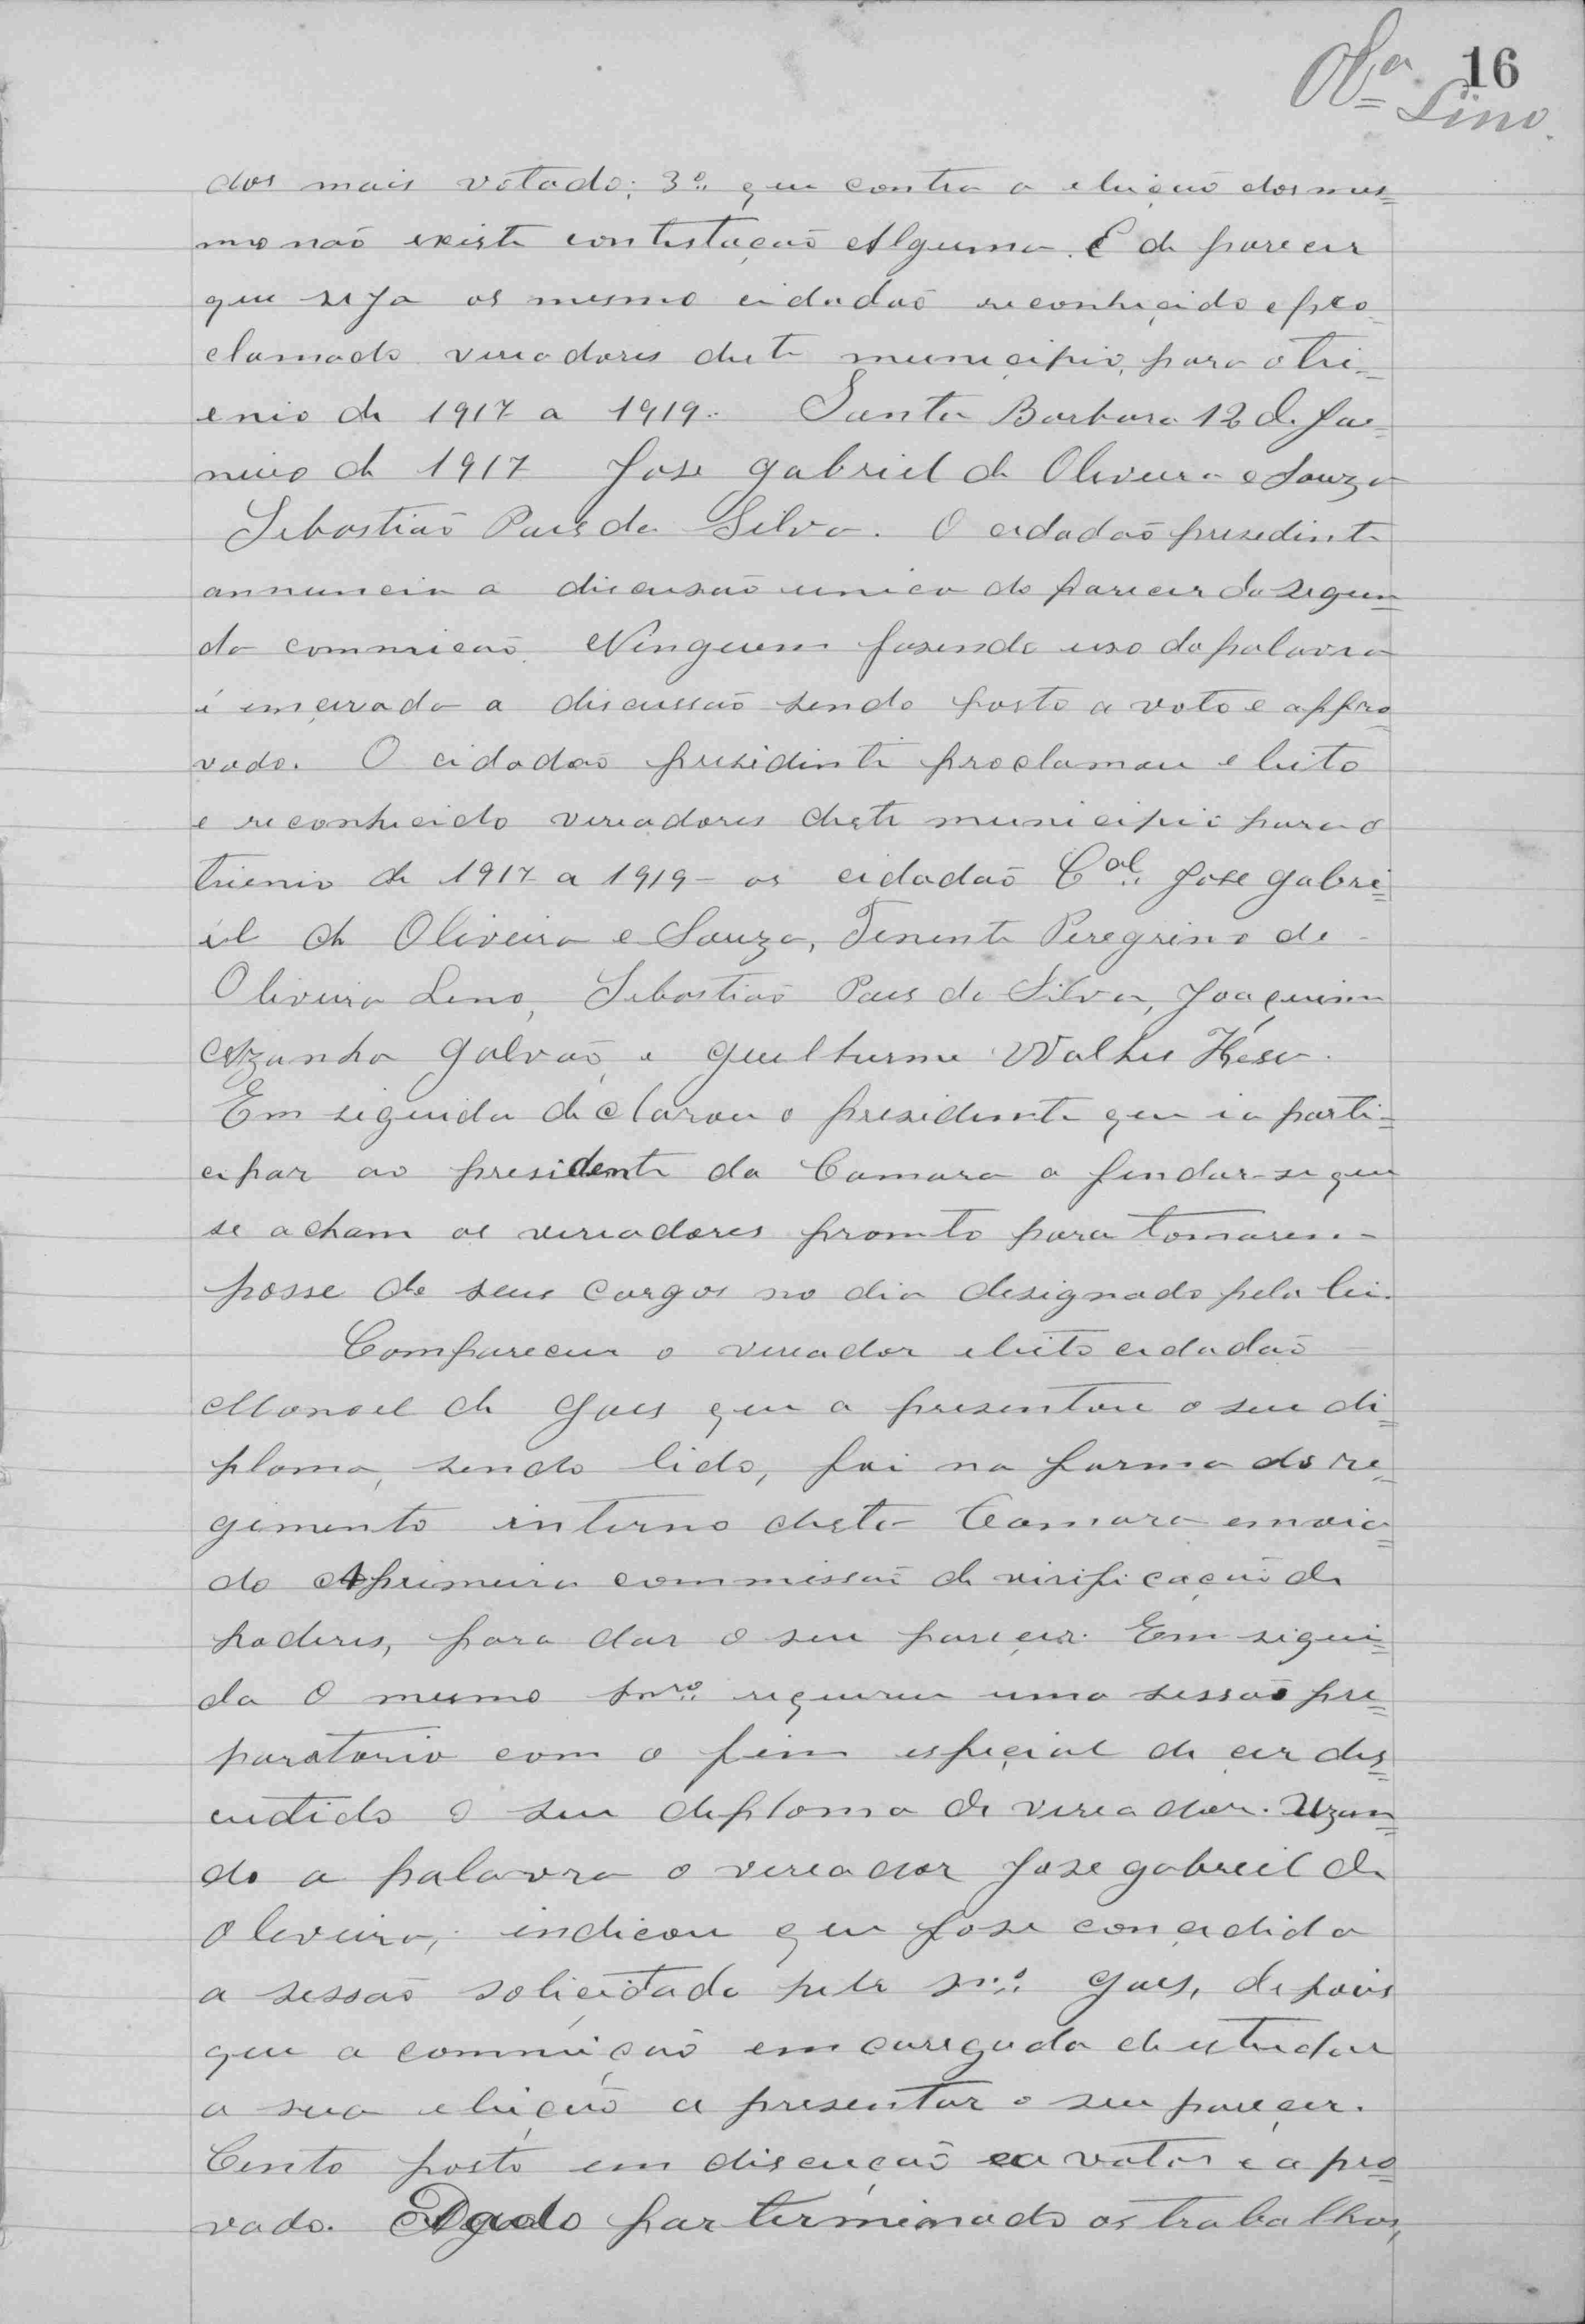 16
Olª Lino.
dos mais votado; 3º que contra a eleiçaõ dos mes=
mo naõ existe contestaçaõ Alguma. E de parecer
que seja os mesmo cidadaõ reconheçido e pro
clamado vereadores deste municipio, para o tri=
enio de 1917 a 1919. Santa Barbara 12 de Ja=
neiro de 1917 Jose Gabriel de Oliveira e Souza
Sebastiaõ Paes da Silva. O cidadaõ presedente
annuncia a discusaõ unica do parecer da segun
da commicaõ. Ninguem fasendo uso da palavra
é emçerada a discussaõ sendo posto a voto e appro
vado. O cidadaõ presidente proclamou eleito
e reconhecido vereadores deste municipio para o
trienio de 1917 a 1919 - os cidadaõ Cel. Jose Gabri=
el de Oliveira e Souza, Tenente Peregrino de
Oliveira Lino, Sebastiaõ Paes da Silva, Joaquim
Azanha Galvaõ, e Guelherme Walter Hese.
Em seguida declarou o presidente que ia parti=
cipar ao presidente da Camara a findar-se que
se acham os vereadores promto para tomarem -
posse de seus cargos no dia designado pela lei.
Compareceu o vereador eleito cidadaõ
Manoel de Goes que a presentou o seu di=
ploma, sendo lido, foi na forma do re=
gimento interno desta Camara emvia=
do A primeira commissaõ de virificaçaõ de
poderes, para dar o seu pareçer. Em segui=
da O mesmo snrº requereu uma sessaõ pre=
paratoria com o fim espeçial de çer dis=
cutido o seu deploma de vereador. Uzan=
do a palavra o vereador Jose gabreil de
Oliveira, indicou que fose conçedida
a sessaõ soliçitada pelo snrº Goes, depois
que a commiçaõ emcaregada de estudar
a sua eleiçaõ a presentar o seu pareçer.
Cento posto em discuçaõ ea votos é a pro=
vado. Dado por terminado os trabalhos,